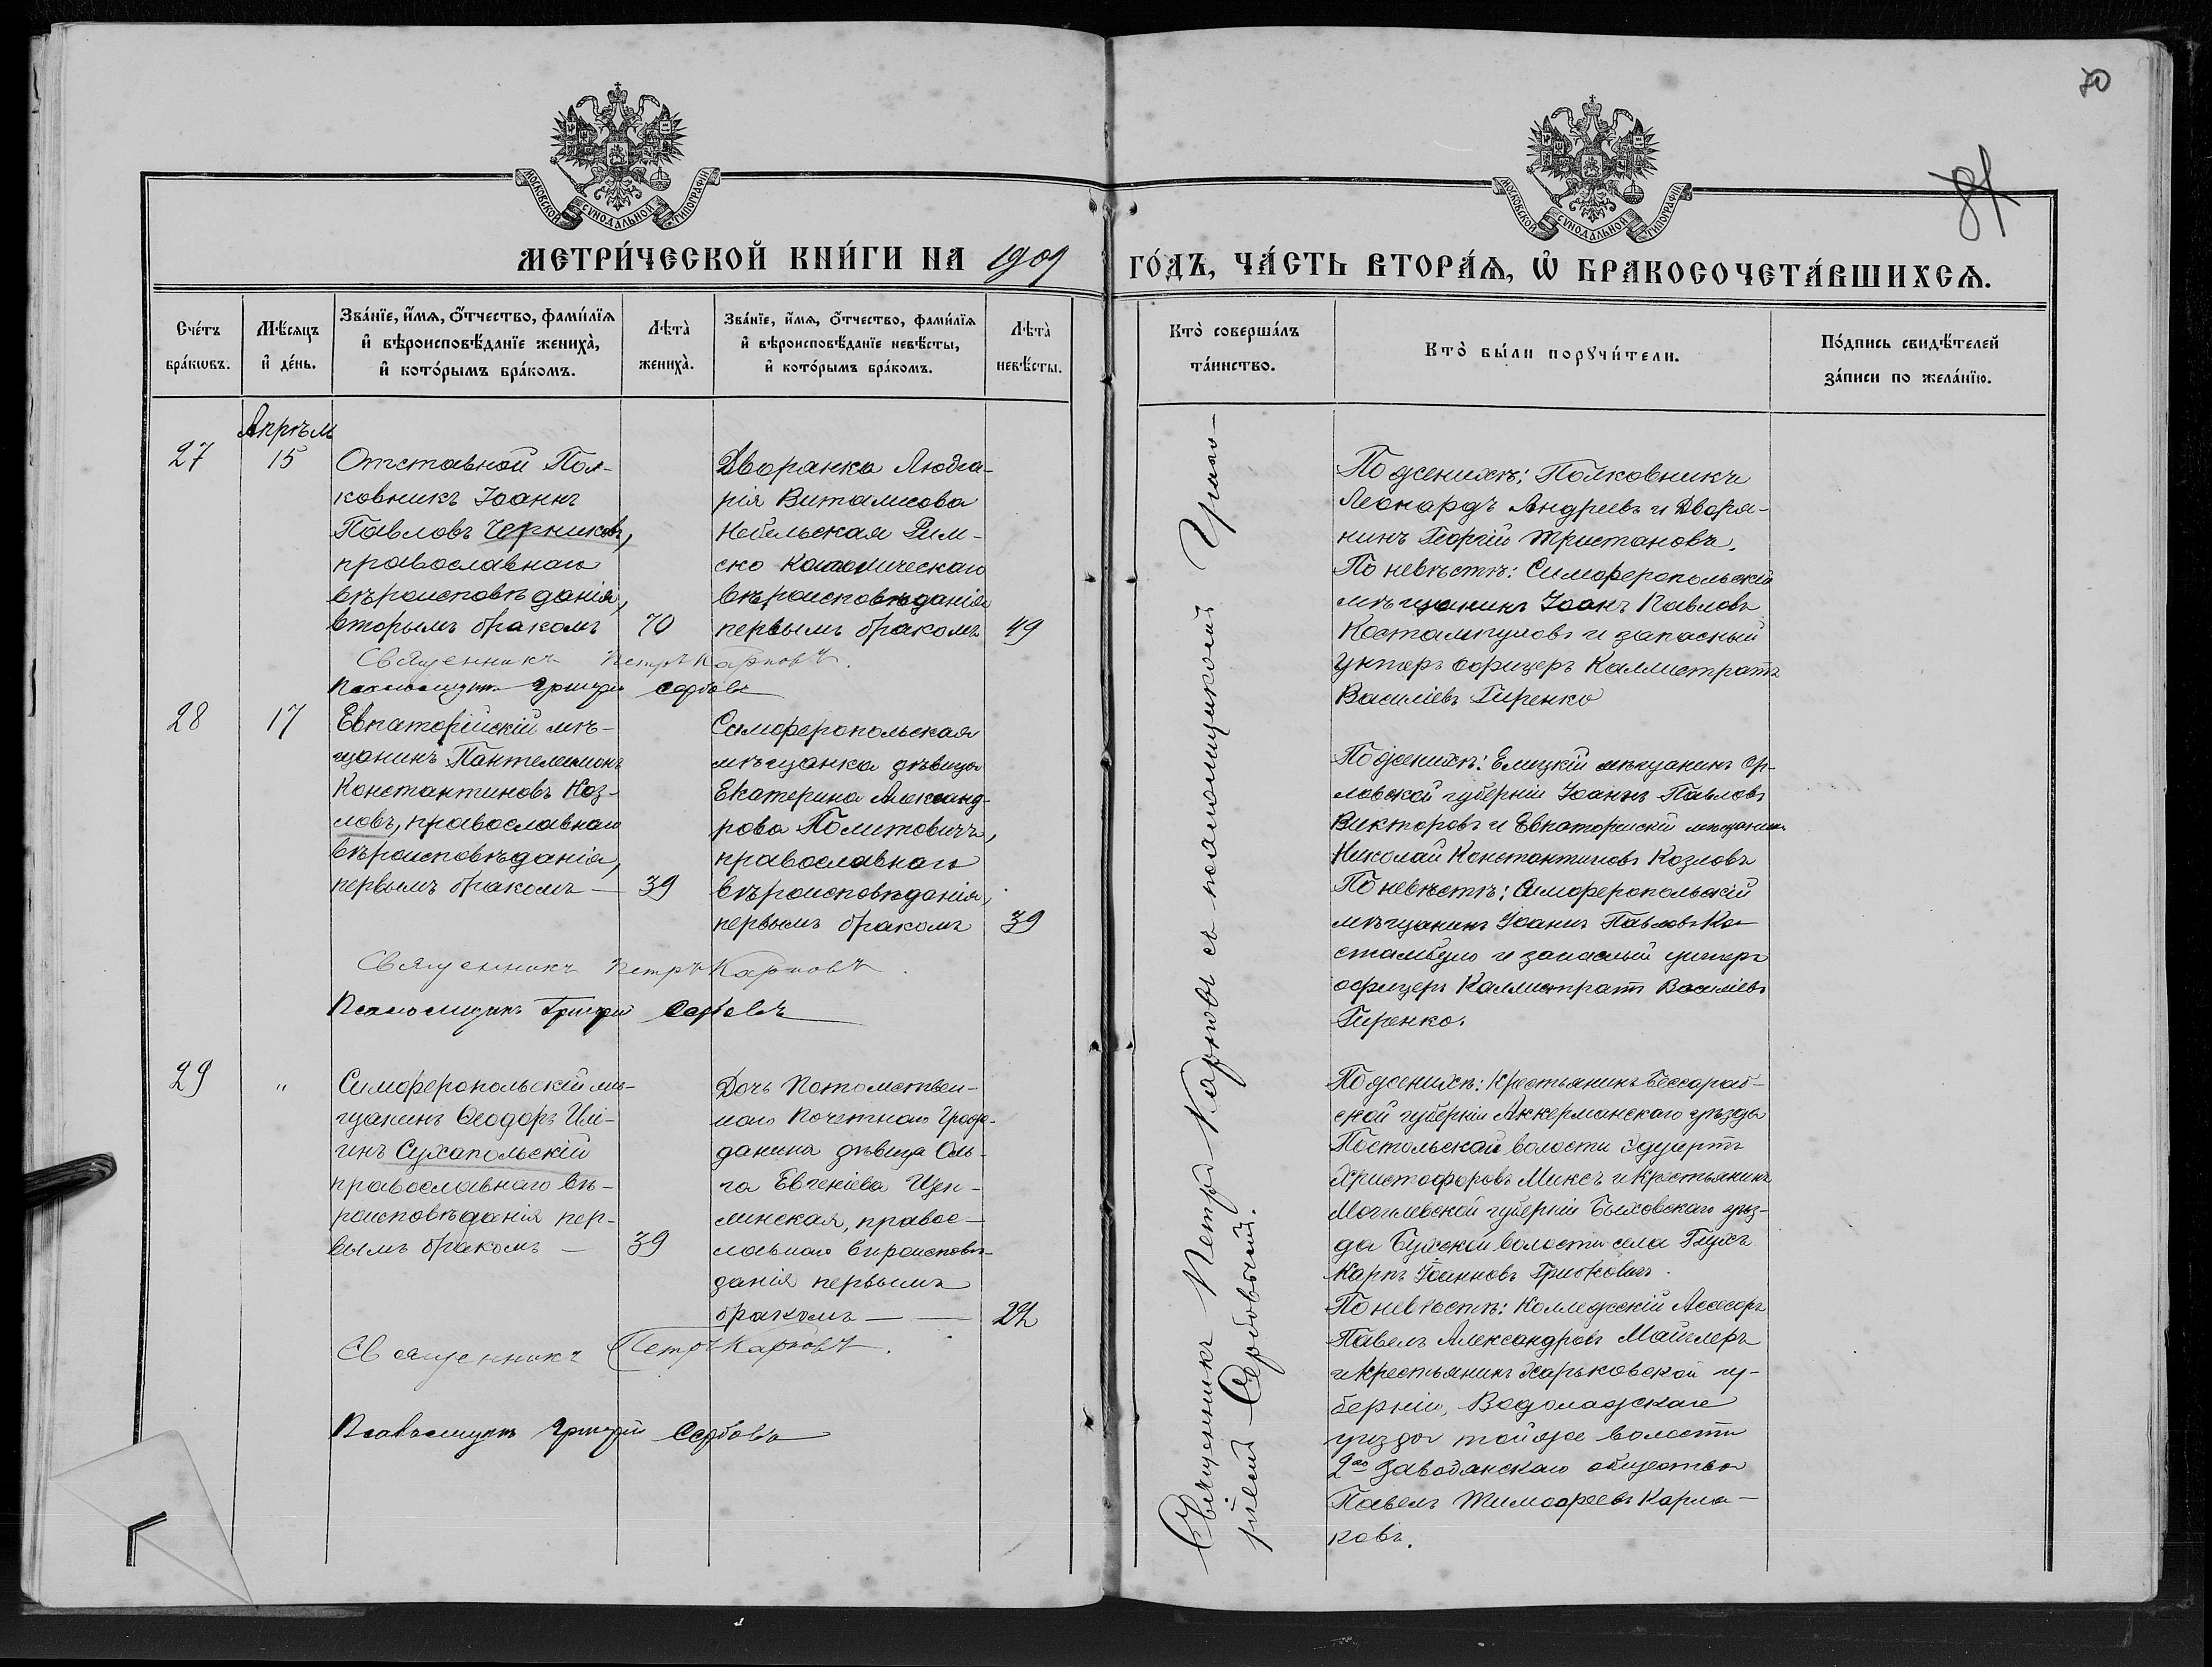 70
81
МОСКОВСКОЙ СѴНОДАЛЬНОЙ ТИПОГРАФІИ
МОСКОВСКОЙ СѴНОДАЛЬНОЙ ТИПОГРАФІИ
МЕТРИ́ЧЕСКОЙ КНИ́ГИ НА 1909 ГО́ДЪ, ЧА́СТЬ ВТОРА́Ѧ, Ѽ БРАКОСОЧЕТА́ВШИХСѦ.
Сче́тъ бра́кѡвъ.
Мѣ́сяцъ и҆ де́нь.
Зва́нїе, и҆́мѧ, ѻ҆́тчество, фами́лїѧ и҆ вѣроисповѣ́данїе жениха̀, и҆ кото́рымъ бра́комъ.
Лѣта̀ жениха̀.
Зва́нїе, и҆́мѧ, ѻ҆́тчество, фами́лїѧ и҆ вѣроисповѣ́данїе невѣ́сты, и҆ кото́рымъ бра́комъ.
Лѣта̀ невѣ́сты.
Кто̀ соверша́лъ та́инство.
Кто̀ бы́ли порꙋчи́тели.
По́дпись свидѣ́телей за́писи по жела́нїю.
27
Апрѣль
15
Отставной Пол-
ковникъ Іоаннъ
Павловъ Черниковъ,
православнаго
вѣроисповѣданія,
вторымъ бракомъ
70
Дворянка Людга-
рія Виталисова
Небельская Рим-
ско Католическаго
вѣроисповѣданія
первымъ бракомъ
49
Священникъ Петръ Карповъ.
Псаломщикъ Григорій Сербовъ
По женихѣ: Полковникъ
Леонардъ Андреевъ и Дворя-
нинъ Георгій Тристановъ.
По невѣстѣ: Симферопольскій
мѣщанинъ Іоанъ Павловъ
Костампуловъ и запасный
унтеръ офицеръ Каллистратъ
Василіевъ Гиренко
28
17
Евпаторійскій мѣ-
щанинъ Пантелеимонъ
Константиновъ Коз-
ловъ, православнаго
вѣроисповѣданія,
первымъ бракомъ —
39
Симферопольская
мѣщанка дѣвица
Екатерина Александ-
рова Политовичъ,
православнаго
вѣроисповѣданія,
первымъ бракомъ
39
Священникъ Петръ Карповъ.
Псаломщикъ Григорій Сербовъ
По женихѣ: Елецкій мѣщанинъ Ор-
ловской губерніи Іоаннъ Павловъ
Викторовъ и Евпаторійскій мѣщанинъ
Николай Константиновъ Козловъ
По невѣстѣ: Симферопольскій
мѣщанинъ Іоаннъ Павловъ Ко-
стамбуло и запасный унтеръ
офицеръ Каллистратъ Василіевъ
Гиренко.
29
"
Симферопольскій мѣ-
щанинъ Ѳеодоръ Илі-
инъ Сухапольскій
православнаго вѣ-
роисповѣданія пер-
вымъ бракомъ —
39
Дочь Потомствен-
наго Почетнаго Граж-
данина дѣвица Оль-
га Евгеніева
линская, право-
славнаго вѣроисповѣ-
данія первымъ
бракомъ —
22
Священникъ Петръ Карповъ.
Псаломщикъ Григорій Сербовъ
По женихѣ: Крестьянинъ Бессараб-
ской губерніи Аккерманскаго уѣзда
Постольской волости Эдуартъ
Христофоровъ Миксъ и Крестьянинъ
Могилевской губерніи Быховскаго уѣз-
да волости села Глухъ
Карпъ Іоанновъ
По невѣстѣ: Коллежскій Ассесоръ
Павелъ Александровъ Майглеръ
и Крестьянинъ Харьковской гу-
берніи, Водолажскаго
уѣзда тойже волости
2го Заводянскаго общества
Павелъ Тимофеевъ Карма-
ковъ.
Священникъ Петръ Карповъ съ псаломщикомъ Григо-
ріемъ Сербовымъ.